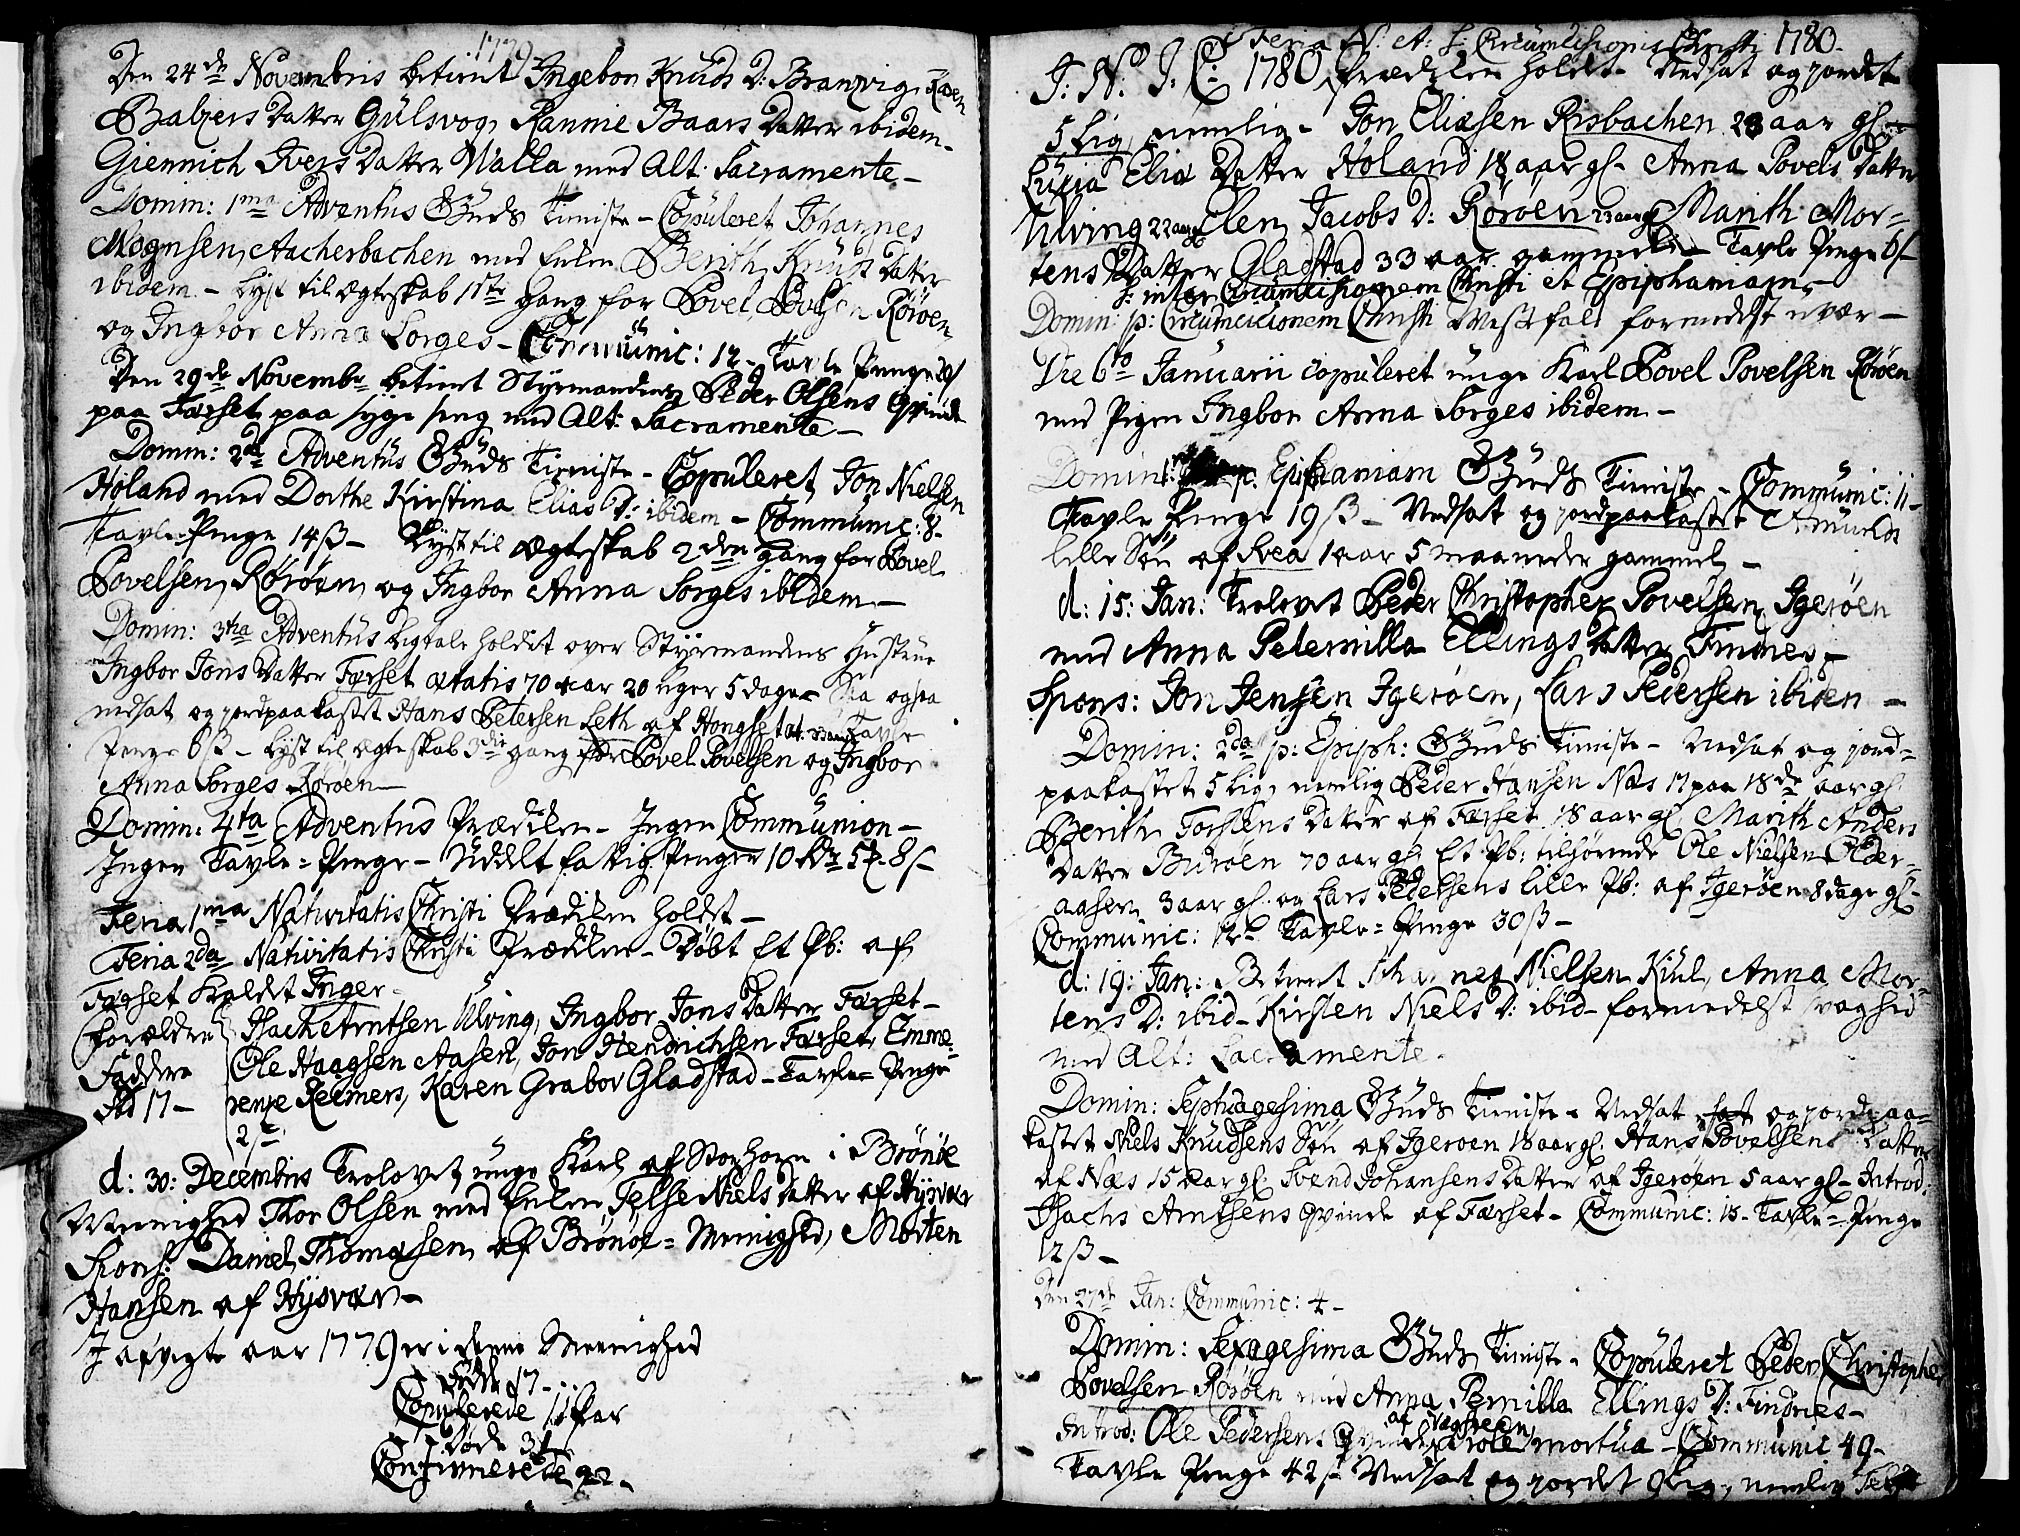 1779
Den 24de Novembris betient Ingebor Knuds D: Branzvig, Karen
Balzers Datter Gulsvog, Rannie Baars Datter ibidem
Giennich Ivers Datter Walla med Alt: Sacramente –
Domin: 1ma Adventus Guds Tieniste – Copuleret Johannes
Mognsen Aacherbachen med Enken Berith Knuds Datter
ibidem – Lyst til Ægteskab 1ste gang for Povel Povelsen Röröen
og Ingbor Anna Sorges – Communic: 12 – Tavle Penge
Den 29de Novembr betient Styrmanden Peder Olsens Qvinde
paa Færset paa syge seng med Alt: Sacramente –
Domin: 2da Adventus Guds Tieniste – Copuleret Jon Nielsen
Höland med Dorthe Kirstina Elias D: ibidem – Communic: 8 –
Tavle Penge 14 ß – Lyst til Ægteskab 2den gang for Povel
Povelsen Röröen og Ingbor Anna Sorges ibidem –
Domin: 3tia Adventus Ligtale holdet over Styrmandens Hustrue
Ingbor Jons Datter Færset ætatis 70 aar 20 uger 5 dage – Saa ogsaa
nedsat og jordpaakastet Hans Petersen Leth af Hongset Tavle
Penge 6 ß – Lyst til Ægteskab 3die gang for Povel Povelsen og Ingbor
Anna Sorges Röröen –
Domin: 4ta Adventus Prædiken – Ingen Communion –
Ingen Tavle = Penge – Uddelt fattig Penger 10 8 ß –
Feria 1ma Nativitatis Christi Prædiken holdet –
Feria 2da Nativitatis Christi Prædiken – Döbt Et Pb: af
Færset kaldet Inger –
Forældre Isach Arntsen Ulving, Ingbor Jons Datter Færset –
Faddere Ole Haagsen Aasen, Jon Hendrichsen Færset, Emme=
No 17 – rense Reemers, Karen Grabov Gladstad – Tavle = Penge
2 ß
d: 30: Decembris Trolovet unge Karl af Storhorn i Brönöe
Meenighed Thor Olsen med Enken Telse Niels Datter af Hysvær
Spons: Daniel Thomæsen af Brönöe = Menighed, Morten
Hansen af Hysvær –
I afvigte aar 1779 er i denne Meenighed
Födde 17 –
Copulerede 11 Par
Döde 31
Confirmerede 22 –
Feria N: A: f: Circumcisionis Christi 1780 –
I: N: J: C: 1780 Prædiken holdet – Nedsat og jordet
5 Lig nemlig – Jon Eliasen Risbachen 23 aar gl –
Lucia Eliæ Datter Höland 18 aar gl – Anna Povels Datter
Ulving 22 aar gl Elen Jacobs D: Röröen 23 aar gl Marith Mor=
tens Datter Gladstad 33 aar gammel – Tavle Penge 6 ß
f: inter Circumcisionem Christi et Epiphaniam
Domin: p: Circumcisionem Christi Mesfald formedelst uvær –
Die 6to Januarii copuleret unge Karl Povel Povelsen Röröen
med Pigen Ingbor Anna Sorges ibidem –
Domin: 1ma p: Epiphaniam Guds Tieniste – Communic: 11 –
Tavle Penge 19 ß – Nedsat og jordpaakastet Amunds
lille Sön af Svea 1 aar 5 maaneder gammel –
d: 15: Jan: Trolovet Peder Christopher Povelsen Igeröen
med Anna Peternilla Ellings Datter Findnes –
Spons: Jon Jensen Igeröen, Lars Pedersen ibidem –
Domin: 2da p: Epiph: Guds Tieniste – Nedsat og jord=
paakastet 5 Lig, nemlig Peder Hansen Næs 17 paa 18de aar gl
Berith Torstens Datter af Færset 18 aar gl Marith Anders
Datter Buröen 70 aar gl Et Pb: tilhörende Ole Nielsen Older=
aasen 3 aar gl og Lars Pedersens lille Pb: af Igeröen 8 dage gl –
Communic: 12 – Tavle = Penge 30 ß –
d: 19: Jan: Betient Johannes Nielsen Kiul, Anna Mor=
tens D: ibid – Kirsten Niels D: ibid – formedelst svaghed
med Alt: Sacramente –
Domin: Septuagesima Guds Tieniste – Nedsat og jordpaa=
kastet Niels Knudsens Sön af Igeröen 18 aar gl. Hans Povelsens Datter
af Næs 15 aar gl. Svend Johansens Datter af Igeröen 5 aar gl – Introd:
Isachs Arntsens Qvinde af Færset – Communic: 18 – Tavle = Penge
12 ß –
Den 27de Jan: Communic: 4 –
Domin: Sexagesima Guds Tieniste – Copuleret Peder Christopher
Povelsen Röröen med Anna Pernilla Ellings D: Findnes –
Introd: Ole Pedersens Qvinde af Vaagsreen, prole mortua – Communic 49 –
Tavle Penge 42 ß Nedsat og jordet Lig, nemlig